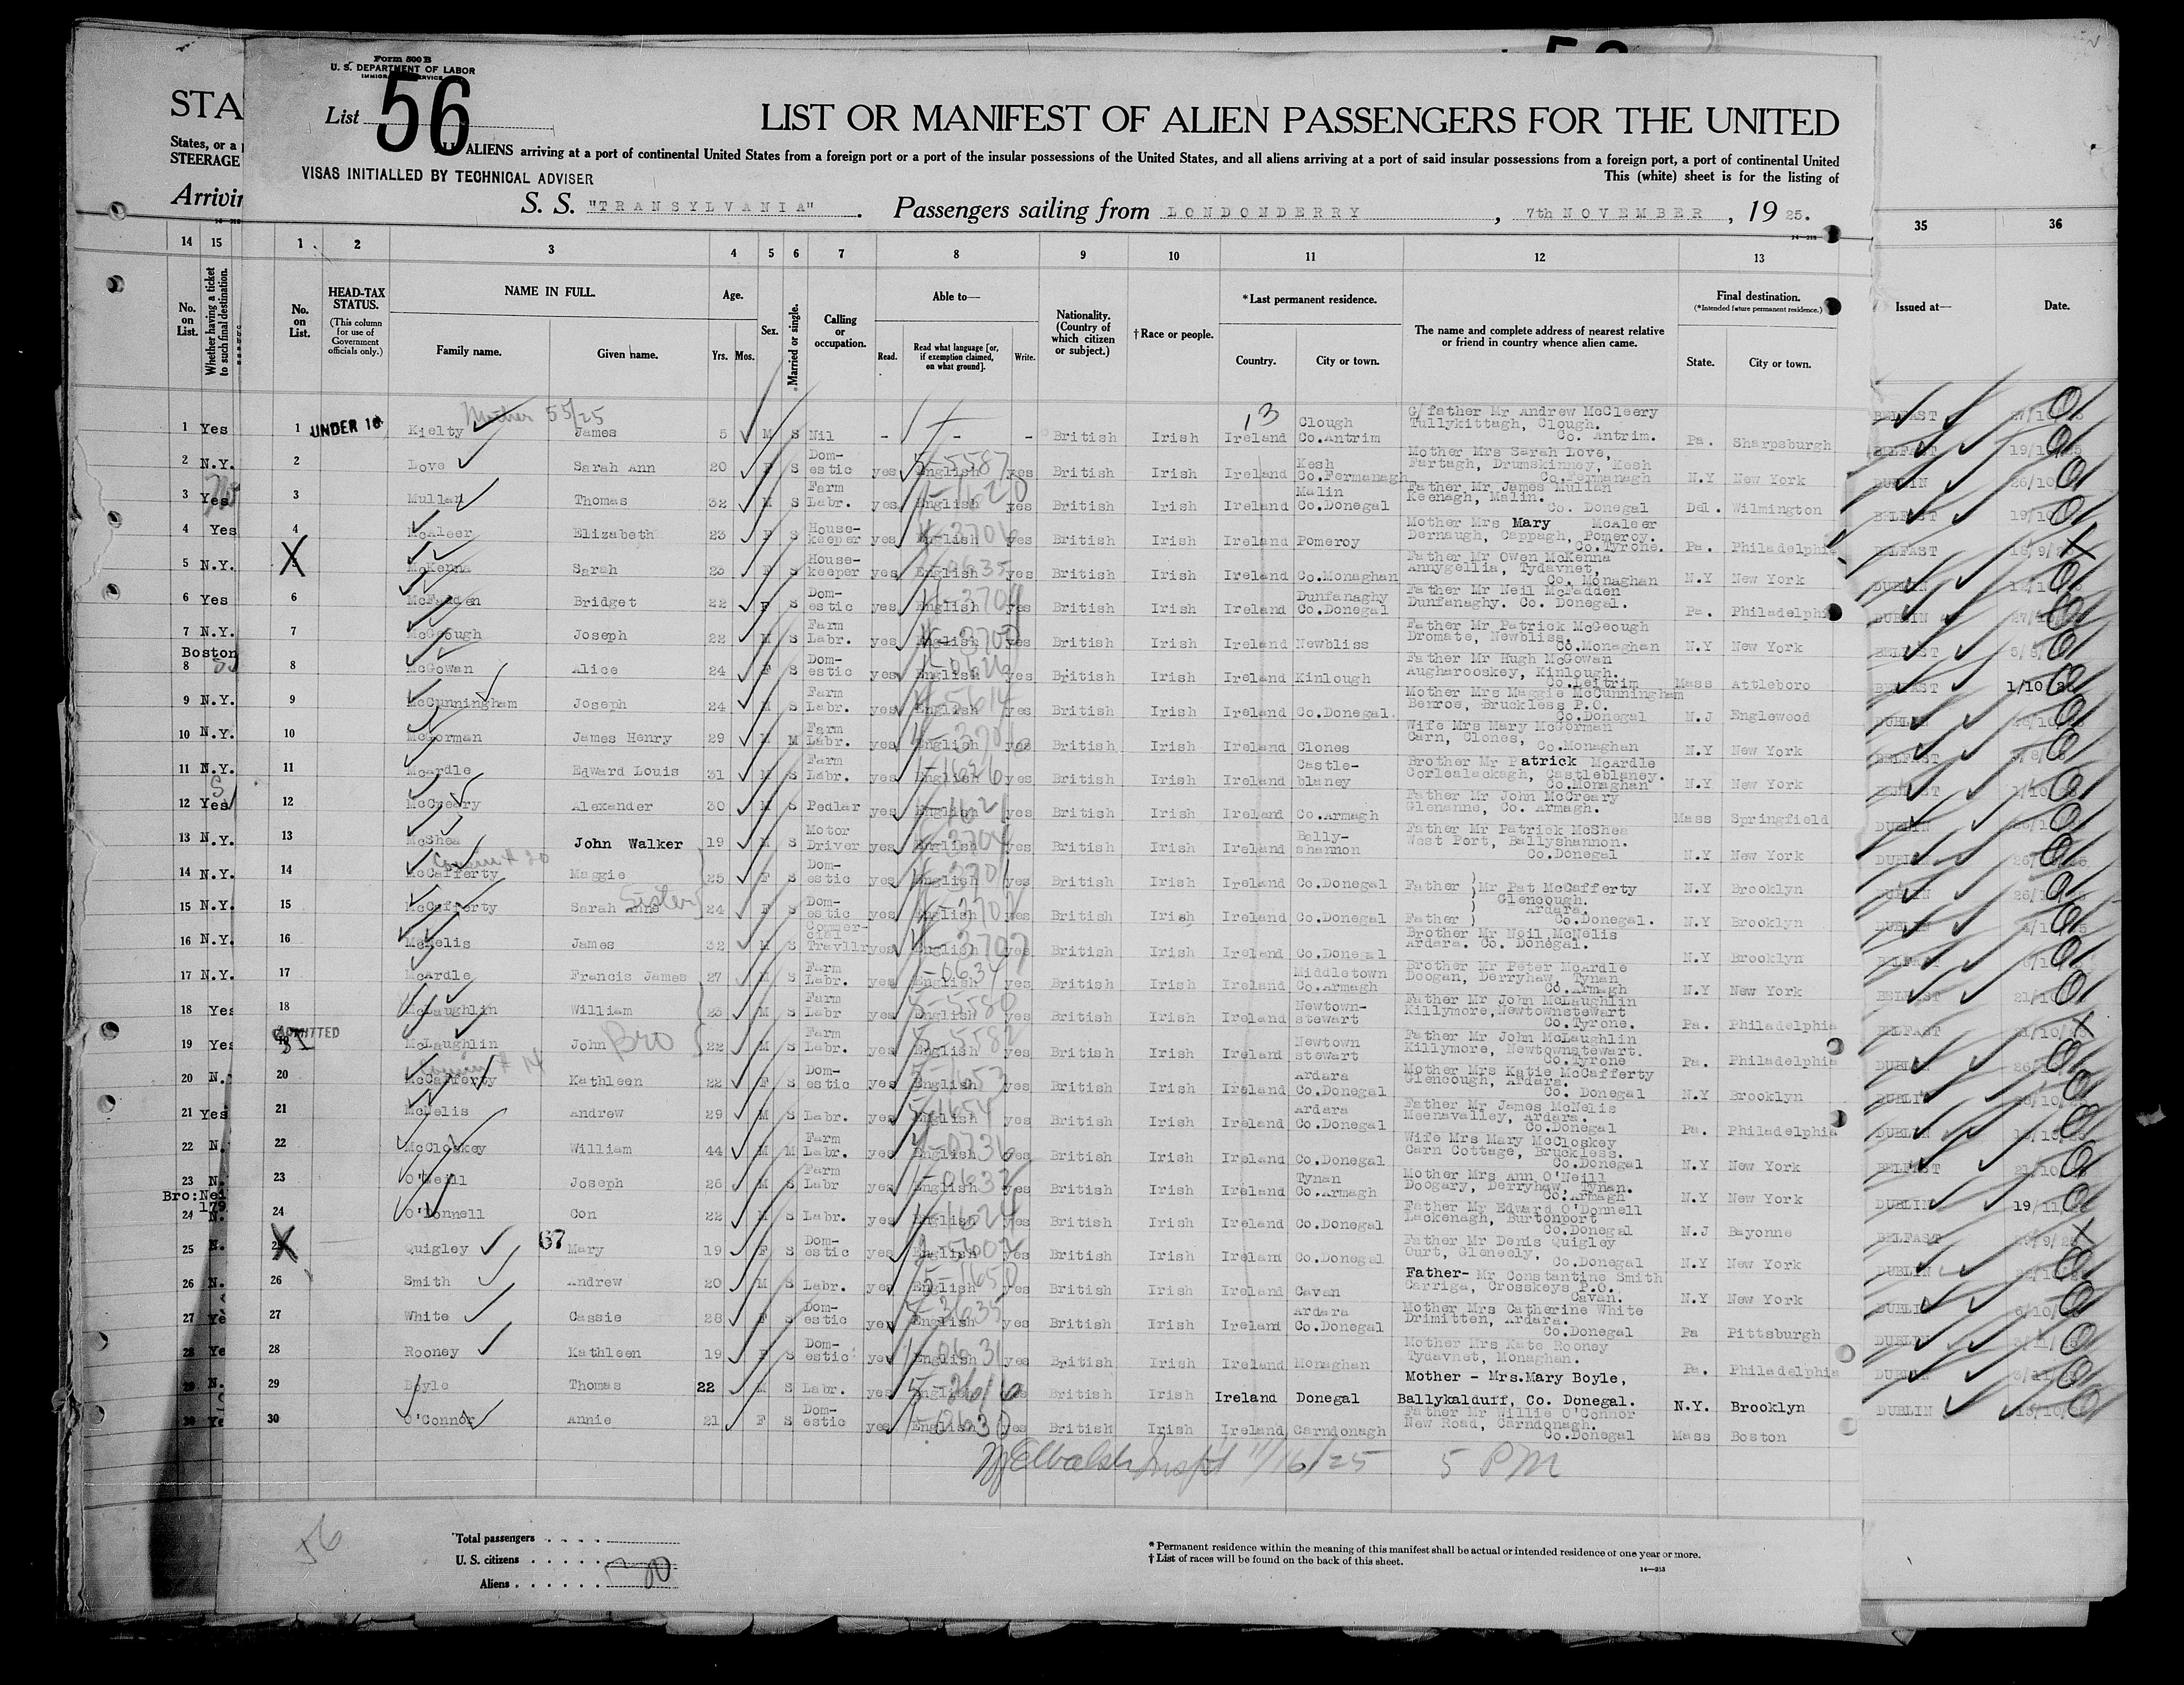 Form 500 B
U. S. DEPARTMENT OF LABOR
IMMIGRATION SERVICE
List 56
LIST OR MANIFEST OF ALIEN PASSENGERS FOR THE UNITED
STA
States, or a
STEERAGE
Arrivin
ALL ALIENS arriving at a port of continental United States from a foreign port or a port of the insular possessions of the United States, and all aliens arriving at a port of said insular possessions from a foreign port, a port of continental United
This (white) sheet is for the listing of
VISAS INITIALLED BY TECHNICAL ADVISER
S. S. "TRANSYLVANIA". Passengers sailing from LONDONDERRY, 7th NOVEMBER, 1925.
14 15 1 2 3 4 5 6 7 8 9 10 11 12 13 35 36
No. on List. Whether having a ticket to such final destination. No. on List. HEAD-TAX STATUS. (This column for use of Government officials only.) NAME IN FULL. Family name. Given name. Age. Yrs. Mos. Sex. Married or single. Calling or occupation. Able to— Read. Read what language [or, if exemption claimed, on what ground]. Write. Nationality. (Country of which citizen or subject.) †Race or people. *Last permanent residence. Country. City or town. The name and complete address of nearest relative or friend in country whence alien came. Final destination. (*Intended future permanent residence.) State. City or town. Issued at— Date.
Mother 55/25
1 Yes 1 UNDER 16 Kielty James 5 M S Nil - - - British Irish Ireland Clough Co.Antrim G/father Mr Andrew McCleery Tullykittagh, Clough. Co. Antrim. Pa. Sharpsburgh BELFAST
2 N.Y. 2 Love Sarah Ann 20 F S Domestic yes English yes British Irish Ireland Kesh Co.Fermanagh Mother Mrs Sarah Love, Fartagh, Drumskinney, Kesh Co.Fermanagh N.Y New York BELFAST
3 Yes 3 Mullan Thomas 32 M S Farm Labr. yes English yes British Irish Ireland Malin Co.Donegal Father Mr James Mullan Keenagh, Malin. Co. Donegal Del. Wilmington DUBLIN
4 Yes 4 McAleer Elizabeth 23 F S House-keeper yes English yes British Irish Ireland Pomeroy Mother Mrs Mary McAleer Dernaugh, Cappagh, Pomeroy. Co.Tyrone. Pa. Philadelphia BELFAST
5 N.Y. 5 McKenna Sarah 23 F S House-keeper yes English yes British Irish Ireland Co.Monaghan Father Mr Owen McKenna Annygellia, Tydavnet, Co. Monaghan N.Y New York BELFAST
6 Yes 6 McFadden Bridget 22 F S Dom-estic yes English yes British Irish Ireland Dunfanaghy Co.Donegal Father Mr Neil McFadden Dunfanaghy. Co. Donegal. Pa. Philadelphia DUBLIN
7 N.Y. 7 McGeough Joseph 22 M S Farm Labr. yes English yes British Irish Ireland Newbliss Father Mr Patrick McGeough Dromate, Newbliss. Co.Monaghan N.Y New York DUBLIN
Boston
8 8 McGowan Alice 24 F S Dom-estic yes English yes British Irish Ireland Kinlough Father Mr Hugh McGowan Augharooskey, Kinlough. Co.Leitrim Mass Attleboro BELFAST
9 N.Y. 9 McCunningham Joseph 24 M S Farm Labr. yes English yes British Irish Ireland Co.Donegal. Mother Mrs Maggie McCunningham Benroe, Bruckless P.O. Co.Donegal N.J Englewood BELFAST
10 N.Y. 10 McGorman James Henry 29 M M Farm Labr. yes English yes British Irish Ireland Clones Wife Mrs Mary McGorman Carn, Clones, Co.Monaghan N.Y New York DUBLIN
11 N.Y. 11 McArdle Edward Louis 31 M S Farm Labr. yes English yes British Irish Ireland Castle-blaney Brother Mr Patrick McArdle Corlealackagh, Castleblaney. Co.Monaghan N.Y New York BELFAST
12 Yes 12 McCreary Alexander 30 M S Pedlar yes English yes British Irish Ireland Co.Armagh Father Mr John McCreary Glenanne, Co. Armagh. Mass Springfield
13 N.Y. 13 McShea John Walker 19 M S Motor Driver yes English yes British Irish Ireland Bally-shannon Father Mr Patrick McShea West Port, Ballyshannon. Co.Donegal N.Y New York DUBLIN
Cousin # 20
14 N.Y. 14 McCafferty Maggie 25 F S Dom-estic yes English yes British Irish Ireland Co.Donegal Father Mr Pat McCafferty Glencough. Ardara. Co.Donegal. N.Y Brooklyn
15 N.Y. 15 McCafferty Sarah Anne Sister 24 F S Dom-estic yes English yes British Irish Ireland Co.Donegal Father N.Y Brooklyn
16 N.Y. 16 McNelis James 32 M S Commer-cial Travllr yes English yes British Irish Ireland Co.Donegal Brother Mr Neil McNelis Ardara. Co. Donegal. N.Y Brooklyn
17 N.Y. 17 McArdle Francis James 27 M S Farm Labr. yes English yes British Irish Ireland Middletown Co.Armagh Brother Mr Peter McArdle Doogan, Derryhaw, Tynan Co.Armagh N.Y New York
18 Yes 18 McLaughlin William 23 M S Farm Labr yes English yes British Irish Ireland Newtown-stewart Father Mr John McLaughlin Killymore,Newtownstewart Co.Tyrone. Pa. Philadelphia
19 Yes ADMITTED 19 McLaughlin John Bro 22 M S Farm Labr. yes English yes British Irish Ireland Newtown stewart Father Mr John McLaughlin Killymore, Newtownstewart. Co.Tyrone Pa. Philadelphia
Cousin # 14
20 N. 20 McCafferty Kathleen 22 F S Dom-estic yes English yes British Irish Ireland Ardara Co.Donegal Mother Mrs Katie McCafferty Glencough, Ardara. Co. Donegal N.Y Brooklyn
21 Yes 21 McNelis Andrew 29 M S Labr. yes English yes British Irish Ireland Ardara Co.Donegal Father Mr James McNelis Meenavalley, Ardara Co.Donegal Pa. Philadelphia
22 N. 22 McCloskey William 44 M M Farm Labr. yes English yes British Irish Ireland Co.Donegal Wife Mrs Mary McCloskey Carn Cottage, Bruckless. Co.Donegal N.Y New York
23 N. 23 O'Neill Joseph 26 M S Farm Labr yes English yes British Irish Ireland Tynan Co.Armagh Mother Mrs Ann O'Neill Doogary, Derryhaw, Tynan. Co.Armagh N.Y New York
Bro:Nei
179
24 N. 24 O'Donnell Con 22 M S Labr. yes English yes British Irish Ireland Co.Donegal Father Mr Edward O'Donnell Lackenagh, Burtonport Co.Donegal N.J Bayonne DUBLIN 19/11
25 N. 25 Quigley 67 Mary 19 F S Dom-estic yes English yes British Irish Ireland Co.Donegal Father Mr Denis Quigley Ourt, Gleneely, Co.Donegal N.Y New York BELFAST
26 N. 26 Smith Andrew 20 M S Labr. yes English yes British Irish Ireland Cavan Father- Mr Constantine Smith Carriga, Crosskeys P.O. Cavan. N.Y New York DUBLIN
27 Ye 27 White Cassie 28 F S Dom-estic yes English yes British Irish Ireland Ardara Co.Donegal Mother Mrs Catherine White Drimitten, Ardara. Co.Donegal Pa Pittsburgh DUBLIN
28 Ye 28 Rooney Kathleen 19 F S Dom-estic yes English yes British Irish Ireland Monaghan Mother Mrs Kate Rooney Tydavnet, Monaghan. Pa. Philadelphia DUBLIN
29 N. 29 Boyle Thomas 22 M S Labr. yes English yes British Irish Ireland Donegal Mother - Mrs.Mary Boyle, Ballykalduff, Co. Donegal. N.Y. Brooklyn DUBLIN
30 Ye 30 O'Connor Annie 21 F S Dom-estic yes English yes British Irish Ireland Carndonagh Father Mr Willie O'Connor New Road, Carndonagh. Co.Donegal Mass Boston DUBLIN
Walsh Inspt 11/16/25 5 PM
56
Total passengers
U. S. citizens
Aliens 30
* Permanent residence within the meaning of this manifest shall be actual or intended residence of one year or more.
† List of races will be found on the back of this sheet.
14—213